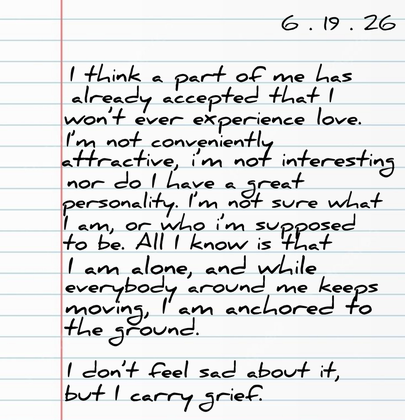 6 . 19 . 26
I think a part of me has
already accepted that I
won't ever experience love.
I'm not conveniently
attractive, i'm not interesting
nor do I have a great
personality. I'm not sure what
I am, or who i'm supposed
to be. All I know is that
I am alone, and while
everybody around me keeps
moving, I am anchored to
the ground.
I don't feel sad about it,
but I carry grief.